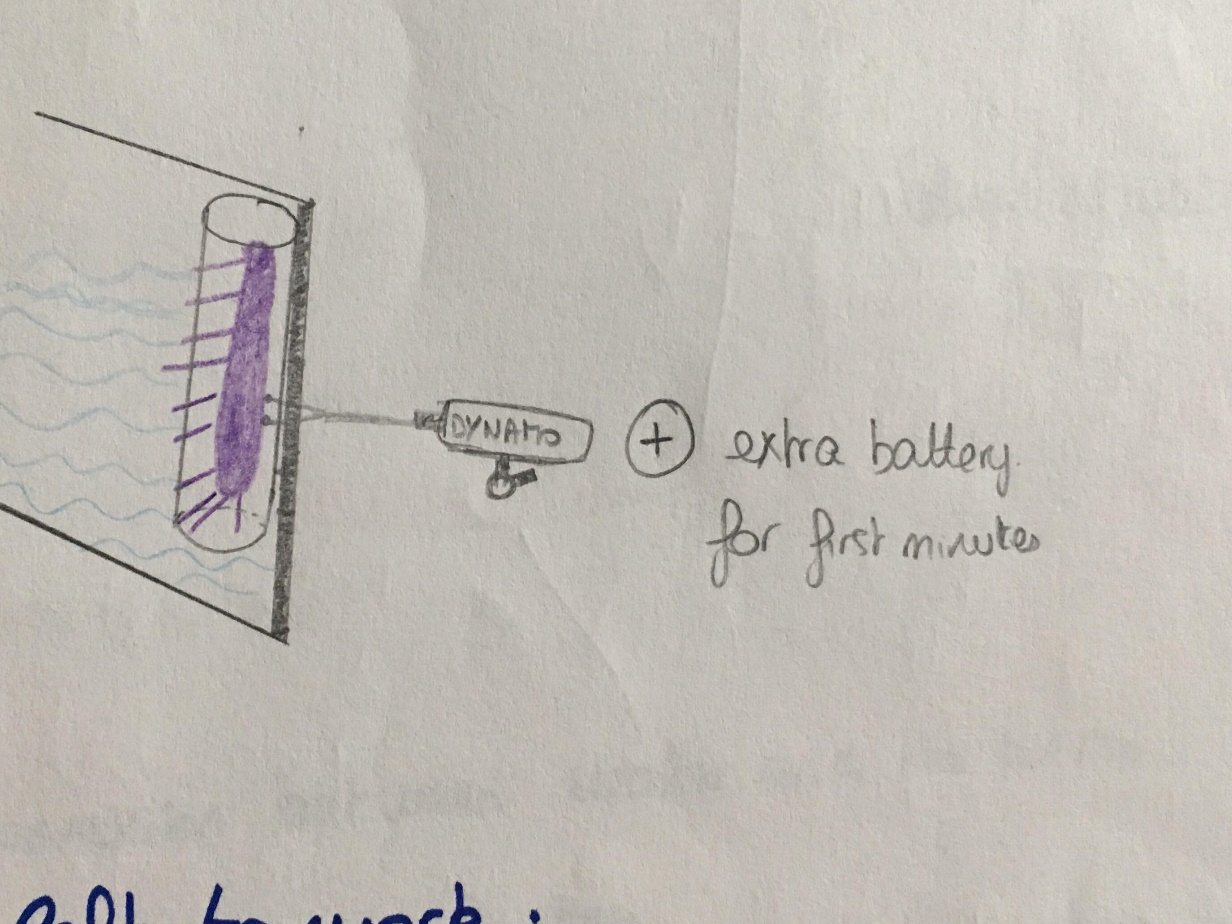 DYNAMO
+ extra battery
for first minutes
to work :